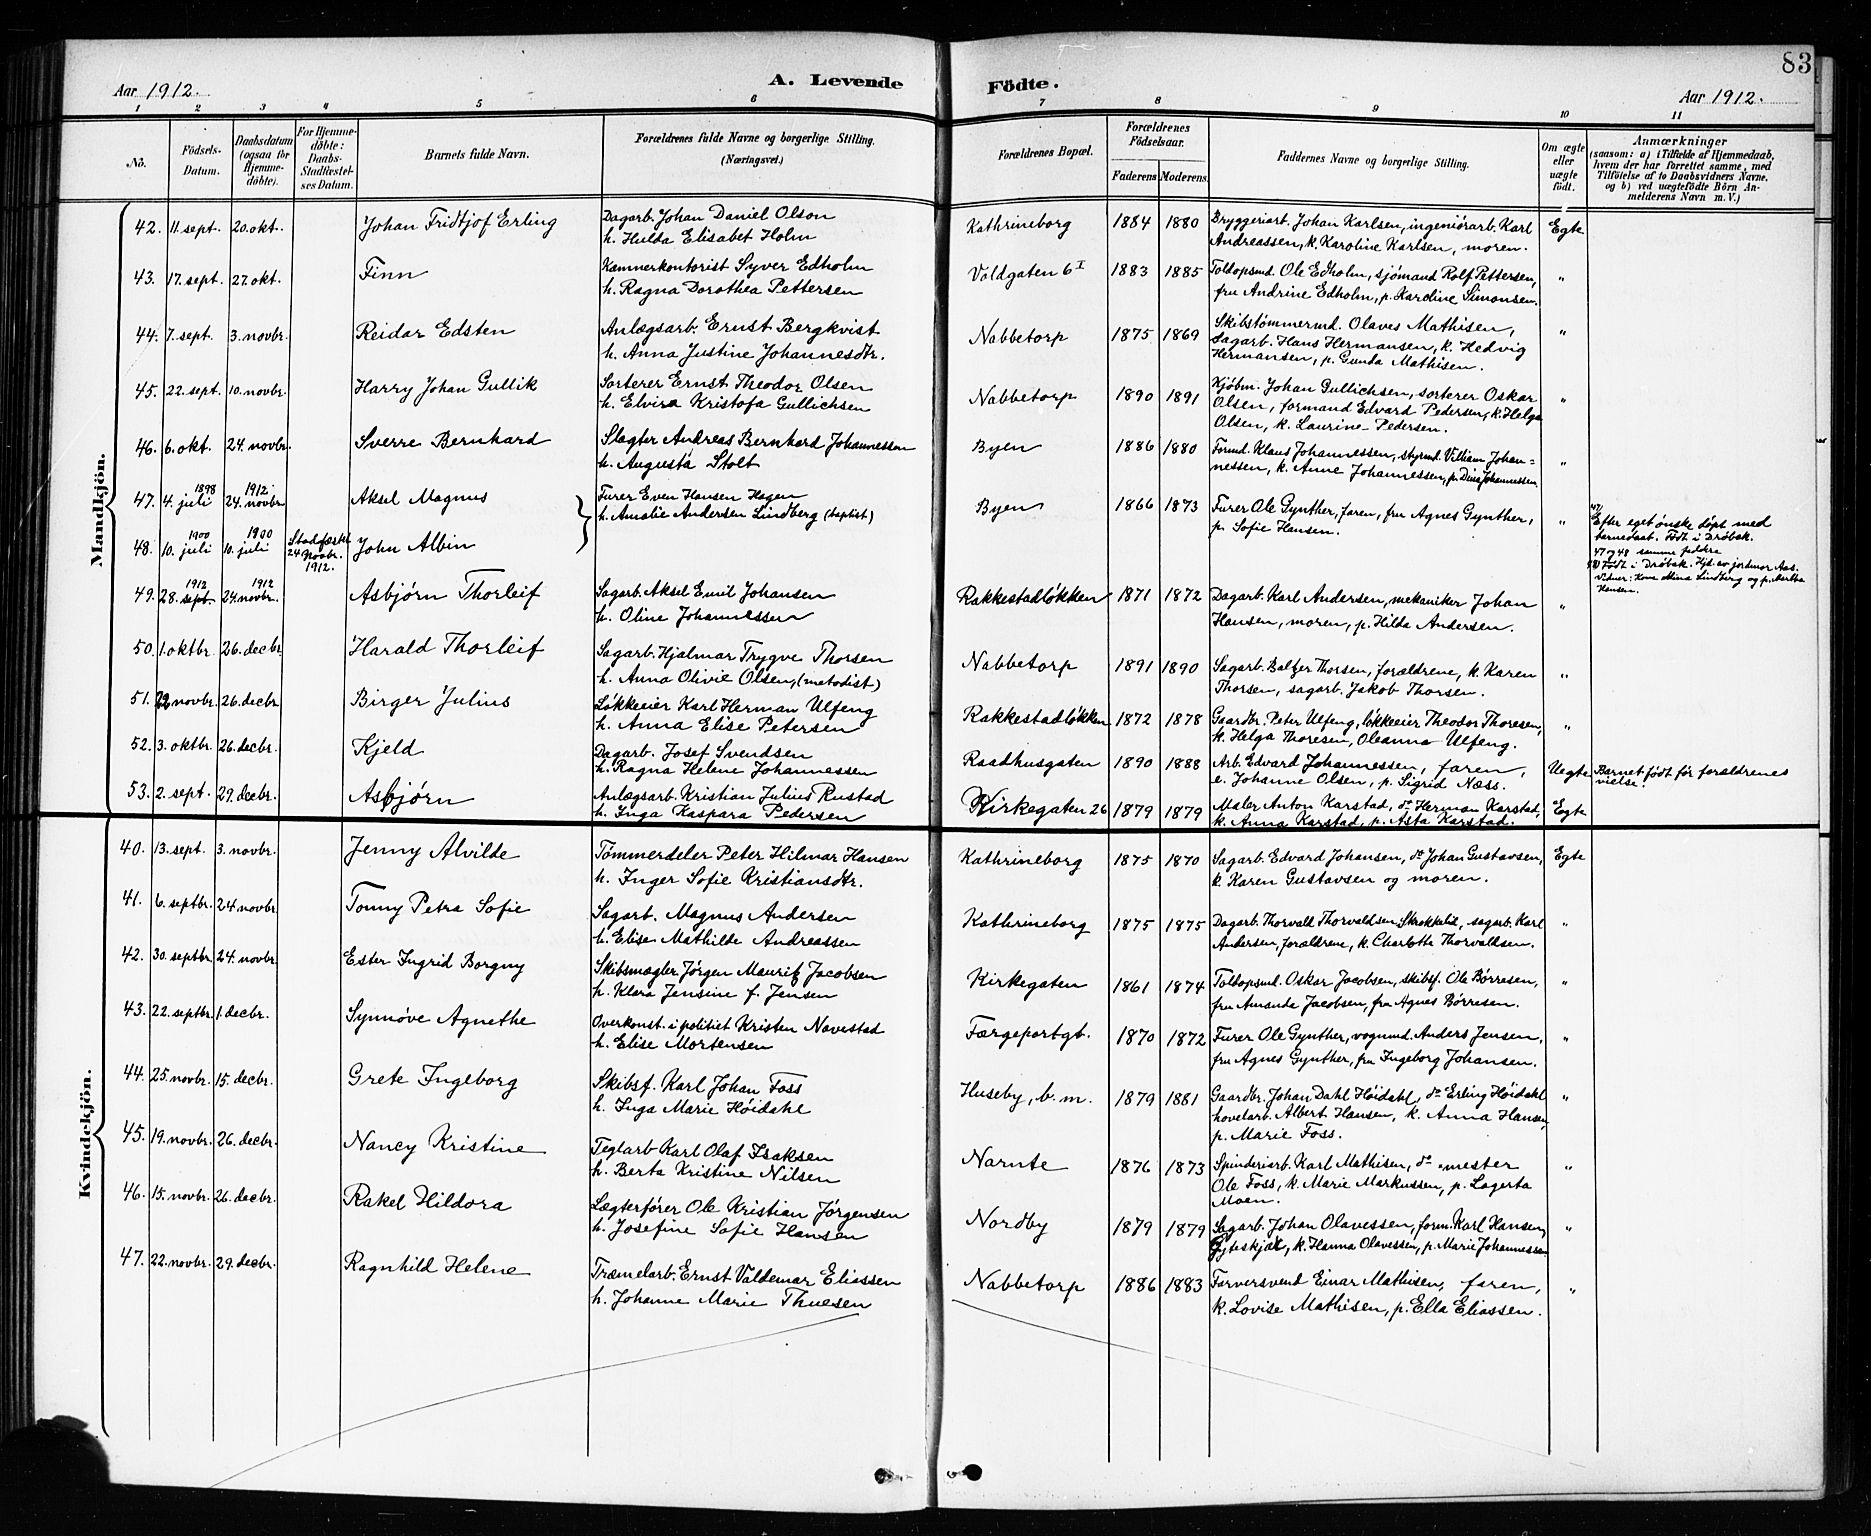 83
Aar 1912. A. Levende Födte. Aar 1912.
1 2 3 4 5 6 7 8 9 10 11
No. Födsels-Datum. Daabsdatum (ogsaa for Hjemme-döbte). For Hjemme-döbte: Daabs-Stadfæstel-ses Datum. Barnets fulde Navn. Forældrenes fulde Navne og borgerlige Stilling. (Næringsvei.) Forældrenes Bopæl. Forældrenes Födselsaar. Faderens Moderens. Faddernes Navne og borgerlige Stilling. Om ægte eller uægte födt. Anmærkninger (saasom: a) i Tilfælde af Hjemmedaab, hvem der har forrettet samme, med Tilföielse af to Daabsvidners Navne, og b) ved uægtefödte Börn An-melderens Navn m. V.)
Mandkjön.
42. 11. sept. 20. okt. Johan Fridtjof Erling Dagarb. Johan Daniel Olson Kathrineborg 1884 1880 Bryggeriarb. Johan Karlsen, ingeniørarb. Karl Egte
h. Hulda Elisabet Holm Andreassen, k. Karoline Karlsen, moren.
43. 17. sept. 27. okt. Finn Kæmnerkontorist Syver Edholm Voldgaten 6 I 1883 1885 Toldopsmd. Ole Edholm, sjømand Rolf Pettersen, "
h. Ragna Dorothea Pettersen fru Andrine Edholm, p. Karoline Simonsen.
44. 7. sept. 3. novbr. Reidar Edsten Anlægsarb. Ernst Bergkvist Nabbetorp 1875 1869 Skibstømmermd. Olaves Mathisen, "
h. Anna Justine Johannesdtr. Sagarb. Hans Hermansen, k. Hedvig
Hermansen, p. Gunda Mathisen.
45. 22. sept. 10. novbr. Harry Johan Gullik Sorterer Ernst Theodor Olsen Nabbetorp 1890 1891 Kjøbm. Johan Gullichsen, sorterer Oskar "
h. Elvira Kristofa Gullichsen Olsen, formand Edvard Pedersen, k. Helga
Olsen, k. Laurine Pedersen.
46. 6. okt. 24. novbr. Sverre Bernhard Slagter Andreas Bernhard Johannessen Byen 1886 1880 Formd. Klaus Johannessen, styrmd. Villiam Johan= "
h. Augusta Stolt nessen, k. Anne Johannessen, p. Dina Johannessen
47. 4. juli 1898 24. novbr 1912 Aksel Magnus Furer Even Hansen Hagen Byen 1866 1873 Furer Ole Gynther, faren, fru Agnes Gynther, " 47/ Efter eget ønske døpt med
h. Amalie Andersen Lindberg (baptist) p. Sofie Hansen. barnedaab. Født i Drøbak.
48. 10. juli 1900 10. juli 1900 Stadfæstet 24 Novbr. 1912. John Albin 47 og 48 samme foreldre
48/ Født i Drøbak. Hjd. av jordmor Aas.
Vidner: Kone Mina Lindberg og p. Martha
Hansen.
49. 28. sept. 1912 24. novbr. 1912 Asbjørn Thorleif Sagarb. Aksel Emil Johansen Rakkestadløkken 1871 1872 Dagarb. Karl Andersen, mekaniker Johan "
h. Oline Johannessen Hansen, moren, p. Hilda Andersen.
50. 1. oktbr. 26. decbr Harald Thorleif Sagarb. Hjalmar Trygve Thorsen Nabbetorp 1891 1890 Sagarb. Baltzer Thorsen, forældrene, k. Karen "
h. Anna Olivie Olsen, (metodist) Thorsen, sagarb. Jakob Thorsen.
51. 22 novbr. 26. decbr. Birger Julius Løkkeeier Karl Herman Ulfeng Rakkestadløkken 1872 1878 Gaardbr. Peter Ulfeng, løkkeeier Theodor Thoresen, "
h. Anna Elise Petersen k. Helga Thoresen, Oleanna Ulfeng.
52. 3. oktbr. 26. decbr. Kjeld Dagarb. Josef Svendsen Raadhusgaten 1890 1888 Arb. Edvard Johannessen, faren, Uegte Barnet født før forældrenes
h. Ragna Helene Johannessen e. Johanne Olsen, p. Sigrid Næss. vielse.
53. 2. sept. 29. decbr. Asbjørn Anlægsarb. Kristian Julius Rustad Kirkegaten 26 1879 1879 Maler Anton Karstad, do Herman Karstad, Egte
h. Inga Kaspara Pedersen k. Anna Karstad, p. Asta Karstad.
Kvindekjön.
40. 13. sept. 3. novbr. Jenny Alvilde Tømmerdeler Peter Hilmar Hansen Kathrineborg 1875 1870 Sagarb. Edvard Johansen, do Johan Gustavsen, Egte
h. Inger Sofie Kristiansdtr. k. Karen Gustavsen og moren.
41. 6. septbr. 24 novbr. Tonny Petra Sofie Sagarb. Magnus Andersen Kathrineborg 1875 1875 Dagarb. Thorvald Thorvaldsen Skrokkelid, sagarb. Karl "
h. Elise Mathilde Andreassen Andersen, forældrene, k. Charlotte Thorvaldsen.
42. 30. septbr. 24. novbr. Ester Ingrid Borgny Skibsmægler Jørgen Mauritz Jacobsen Kirkegaten 1861 1874 Toldopsmd. Oskar Jacobsen, skibsf. Ole Børresen, "
h. Klara Jensine f. Jensen fru Amanda Jacobsen, fru Agnes Børresen.
43. 22. septbr. 1. decbr. Synnøve Agnethe Overkonst. i politiet Kristen Navestad Færgeportgt. 1870 1872 Furer Ole Gynther, vognmd. Anders Jensen, "
h. Elise Mortensen fru Agnes Gynther, fru Ingeborg Johansen.
44. 25. novbr. 15. decbr. Grete Ingeborg Skibsf. Karl Johan Foss Huseby, b. m. 1879 1881 Gaardbr. Johan Dahl Høidahl, do Erling Høidahl "
h. Inga Marie Høidahl høvelarb. Albert Hansen, k. Anna Hansen,
p. Marie Foss.
45. 19. novbr. 26. decbr. Nancy Kristine Teglarb Karl Olaf Isaksen Narnte 1876 1873 Spinderiarb. Karl Mathisen, do -mester "
h. Berta Kristine Nilsen Ole Foss, k. Marie Markussen, p. Lagerta
Moen.
46. 15. novbr. 26. decbr. Rakel Hildora Lægterfører Ole Kristian Jørgensen Nordby 1879 1879 Sagarb. Johan Olavessen, form. Karl Hansen "
h. Josefine Sofie Hansen k. Hanna Olavessen, p. Marie Johannessen
47. 22. novbr. 29. decbr. Ragnhild Helene Træmelarb. Ernst Valdemar Eliassen Nabbetorp 1886 1883 Farversvend Einar Mathisen, faren, "
h. Johanne Marie Thuesen k. Lovise Mathisen, p. Ella Eliassen.